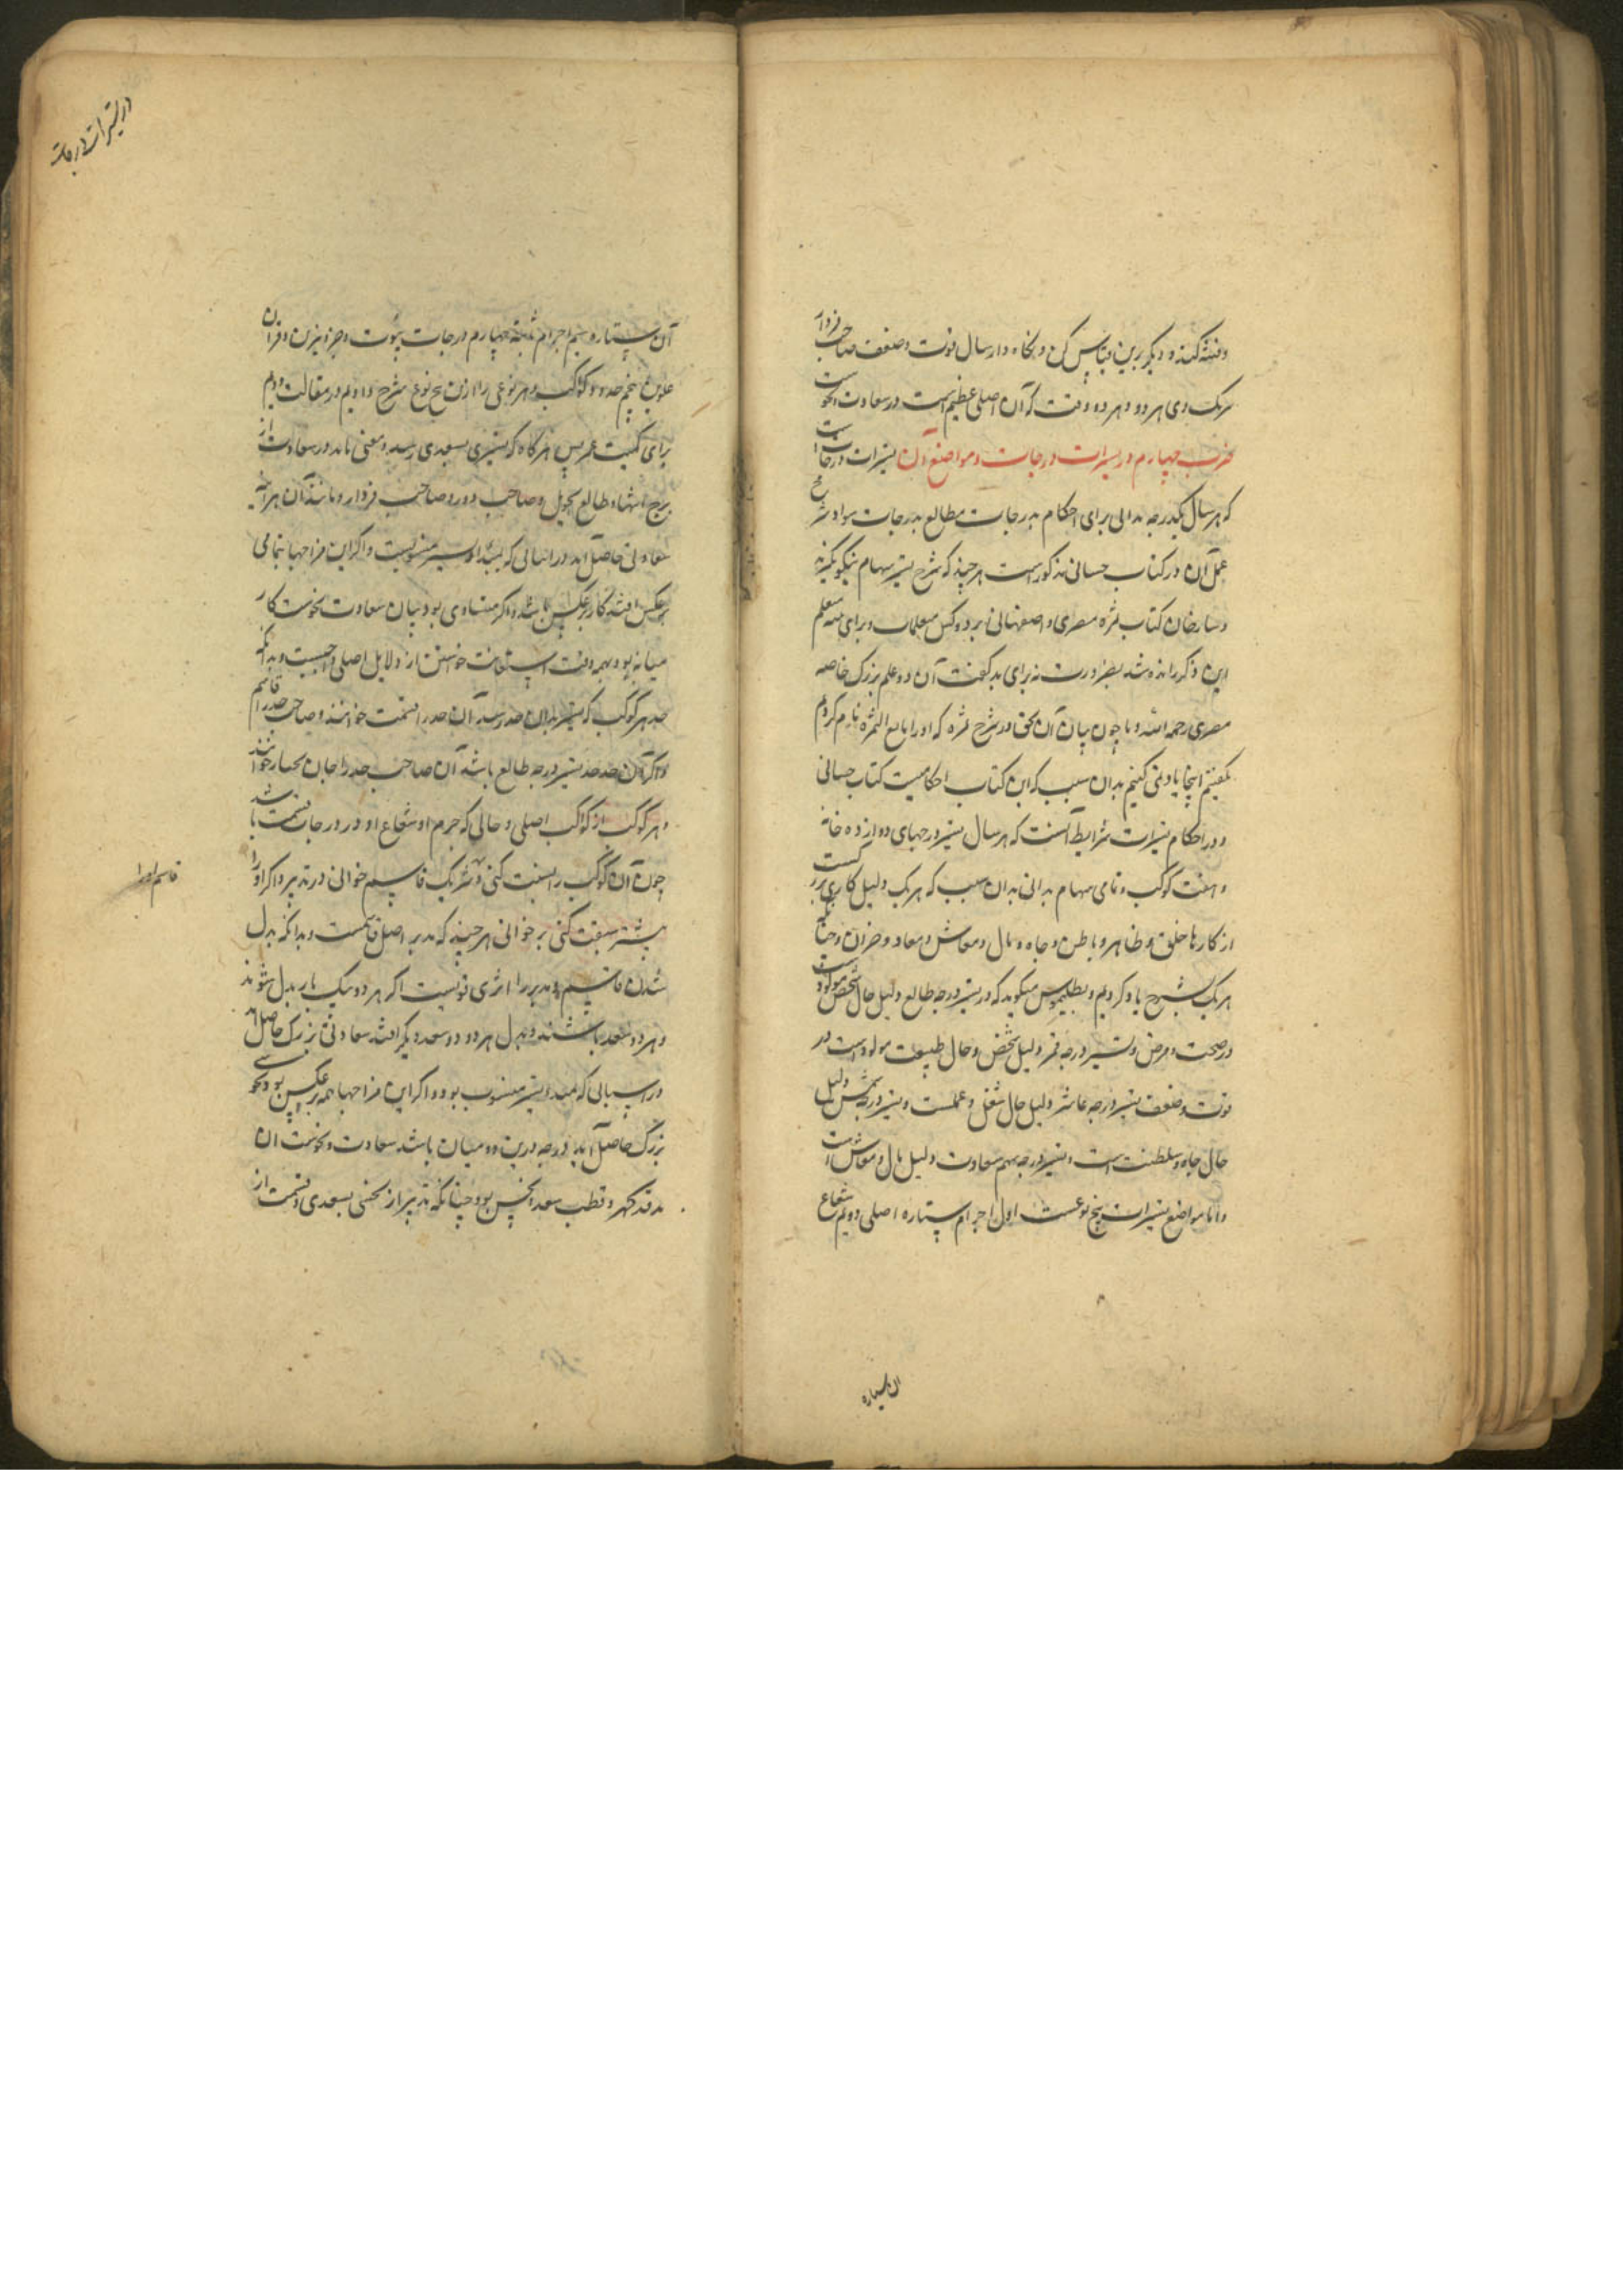 وفتنه کند و دیگر برین قیاس کن و نگاه دار سال قوت و ضعف صاحب فردار
شریک وی هر دو و هر دو وقت که آن اصلی عظیم است در سعادت نحوست
ضرب چهارم در تسیرات درجات و مواضع آن تسیرات درجات است
که هر سال یکدرجه بدانی برای احکام بدرجات مطالع بدرجات سوا و شرح
عمل آن در کتاب حسابی مذکور است هر چند که شرح تسیر سهام نیکو نکند
و شارحان کتاب ثمره مصری و اصفهانی
این ذکر رانده شد بضرورت نه برای بد گفت آن دو علم بزرگ خاصه
مصری رحمه الله و ما چون بیان آن بحق در شرح ثمره که او را یانع الثمره نام کردم
بگفتیم اینجا یاد نمی کنیم بدان سبب که این کتاب احکامیست کتاب حسابی
و در احکام تسیرات شرایط آنست که هر سال تسیر درجهای دوازده خانه
و هفت کوکب و تمامی سهام بدانی بدان سبب که هر یک دلیل کاری بزرگست
از کارها خلق و ظاهر و باطن و جاه و مال و معاش و معاد و جز آن و چنانک
هر یک بشرح یاد کردیم و بطلمیوس میکوید که در تسیر درجه طالع دلیل حال شخص مولودست
در صحت و مرض و تسیر درجه قمر دلیل شخص و حال طبیعت مولود است در
قوت و ضعف تسیر درجه عاشر دلیل حال شغل و عملست و تسیر درجه شمس دلیل
حال جاه و سلطنت است و تسیر درجه سهم سعادت دلیل مال و معاش است
و اما مواضع تسیرات پنج نوعست اول اجرام ستاره اصلی دویم شعاع
آن ستاره
در تسیرات درجات
آن ستاره سیم اجرام ثابته چهارم درجات بیوت و جز و نیرین و قران
علویین پنجم حدود کواکب و هر نوعی را ازین پنج نوع شرح دادیم در مقالت دویم
برای کمیت عمر پس هر گاه که تسیری بسعدی رسد و معنی ماند در سعادت از
برج انتها و طالع تحویل و صاحب دور و صاحب فردار و مانند آن هر آینه
سعادتی حاصل آید در انسالی که بمبدا و تسیر منسوبست و اگر این مزاجها بتمامی
برعکس افتد کار برعکس باشد و اگر متساوی بود میان سعادت نحوست کار
میانه بود و بهمه وقت استعانت خواستن از دلایل اصلی واجبست و بدانکه
حد هر کوکب که تسیر بدان حد رسد آن حد را قسمت خوانند و صاحب حد را قاسم
و اگر آن حد حد تسیر درجه طالع باشد آن صاحب حد را جان بختار خوانند
و هر کوکب از کواکب اصلی و حالی که جرم او و شعاع او در درجات قسمت باشد
چون آن کوکب را بسفت کنی و شریک قاسم خوانی در تدبیر و اگر او را
پیشتر سبقت کنی بر خوانی هر چند که مدبر اصل قاسمست و بدانکه بدل
شدن قاسم و مدبر را اثری قویست اگر هر دو بیک بار بدل شوند
و هر دو سعد باشند و بدل هر دو دو سعد دیگر افتد سعادتی بزرگ حاصل آید
در آن سالی که بمبدا و تسیر منسوب بود و اگر این مزاجها همه برعکس بود نحوسی
بزرگ حاصل آید و درجه درین دو میان باشد سعادت و نحوست آن
قدر و قطب سعد و نحس بود چنانکه تدبیر از نحسی بسعدی و قسمت از